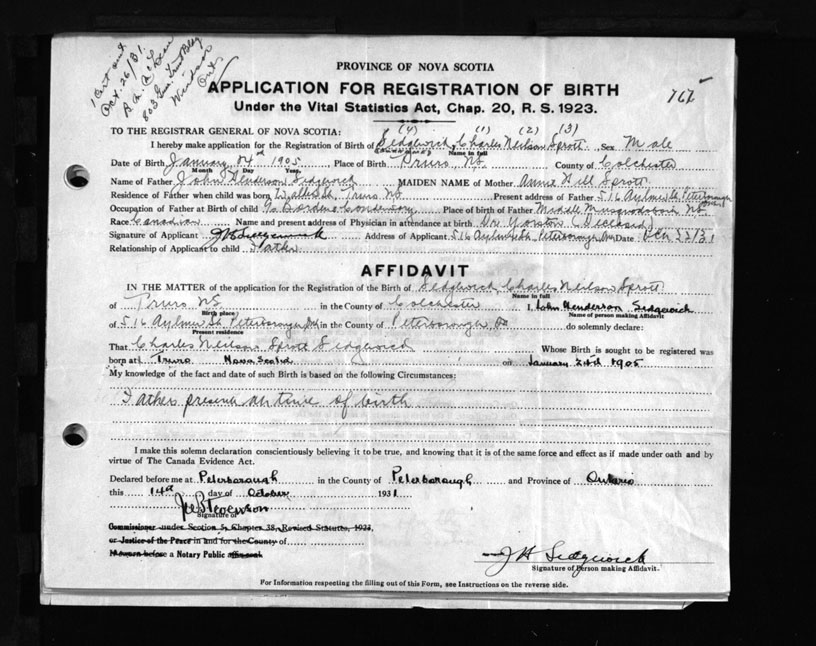 1 Cert and
Oct. 26/31.
803
Windsor
Ont.
767
PROVINCE OF NOVA SCOTIA
APPLICATION FOR REGISTRATION OF BIRTH
Under the Vital Statistics Act, Chap. 20, R. S. 1923.
(4) (1) (2) (3)
TO THE REGISTRAR GENERAL OF NOVA SCOTIA:
I hereby make application for the Registration of Birth of Sedgewick, Charles Neilson Sprott Sex Male
Name in full
Date of Birth January 1905 Place of Birth Truro NS County of Colchester
Month Day Year
Name of Father John Henderson Sedgewick MAIDEN NAME of Mother Annie Hill Sprott
Residence of Father when child was born Truro NS Present address of Father 516 Aylmer St. Peterborough
Occupation of Father at Birth of child Place of birth of Father Middle Musquodoboit NS
Race Canadian Name and present address of Physician in attendance at birth Dr Yorston (Deceased)
Signature of Applicant JH Sedgewick Address of Applicant 516 Aylmer St. Peterborough Ont Date
Relationship of Applicant to child Father
AFFIDAVIT
IN THE MATTER of the application of the Registration of the Birth of Sedgewick, Charles Neilson Sprott
Name in full
of Truro NS in the County of Colchester I, John Henderson Sedgewick
Birth place Name of person making Affidavit
of 516 Aylmer St Peterborough Ont in the County of Peterborough do solemnly declare:
Present residence
That Charles Neilson Sprott Sedgewick Whose Birth is sought to be registered was
born at Truro Nova Scotia on January 1905
My knowledge of the fact and date of such Birth is based on the following Circumstances:
Father present at time of birth
I make this solemn declaration conscientiously believing it to be true, and knowing that it is of the same force and effect as if made under oath and by
virtue of The Canada Evidence Act.
Declared before me at Peterborough in the County of Peterborough and Province of Ontario
this 14th day of October 1931
Stevenson
Signature of
Commissioner under Section 5, Chapter 38, Revised Statutes, 1923,
or Justice of the Peace in and for the County of
a Notary Public
J H Sedgewick
Signature of Person making Affidavit.
For Information respecting the filling out of this Form, see Instructions on the reverse side.